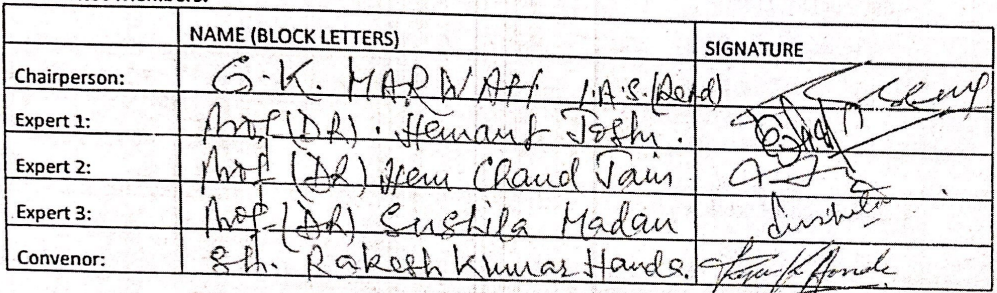 NAME (BLOCK LETTERS) SIGNATURE
Chairperson: G.K. MARWAH I.A.S.(Retd)
Expert 1: Prof (DR). Hemant Joshi.
Expert 2: Prof (DR) Hem Chand Jain
Expert 3: Prof-(DR) Sushila Madan Sushila
Convenor: Sh. Rakesh Kumar Handa.